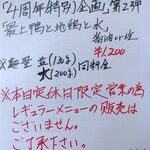 「4周年特別企画」第2弾
「最上鴨と地鶏と水」
醤油
¥1,200
※麺量 並(130g)
大(200g)同料金
※本日定休日限定営業の為
レギュラーメニューの販売は
ございません。
ご了承下さい。